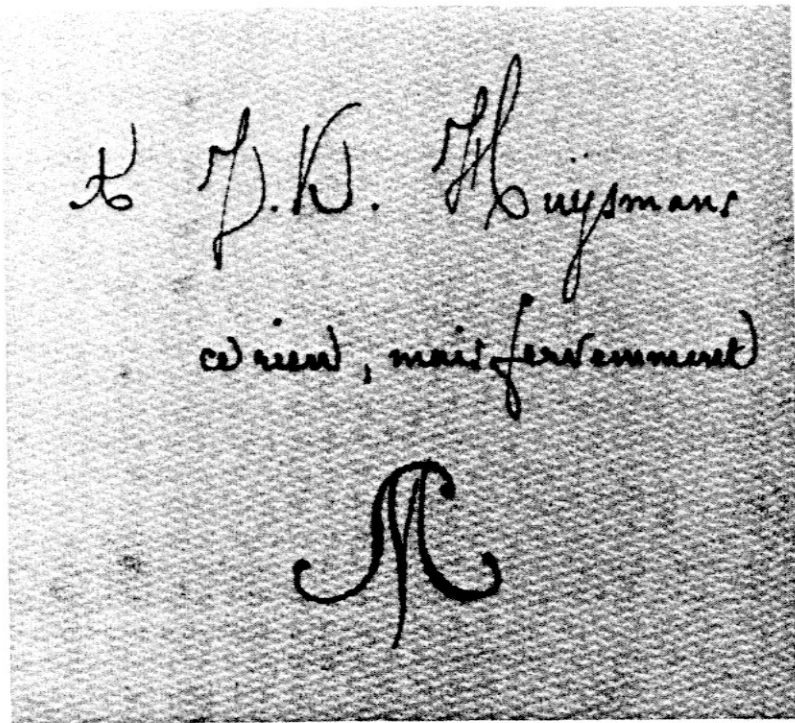 à J.K. Huÿsmans
ce rien, mais fervemment